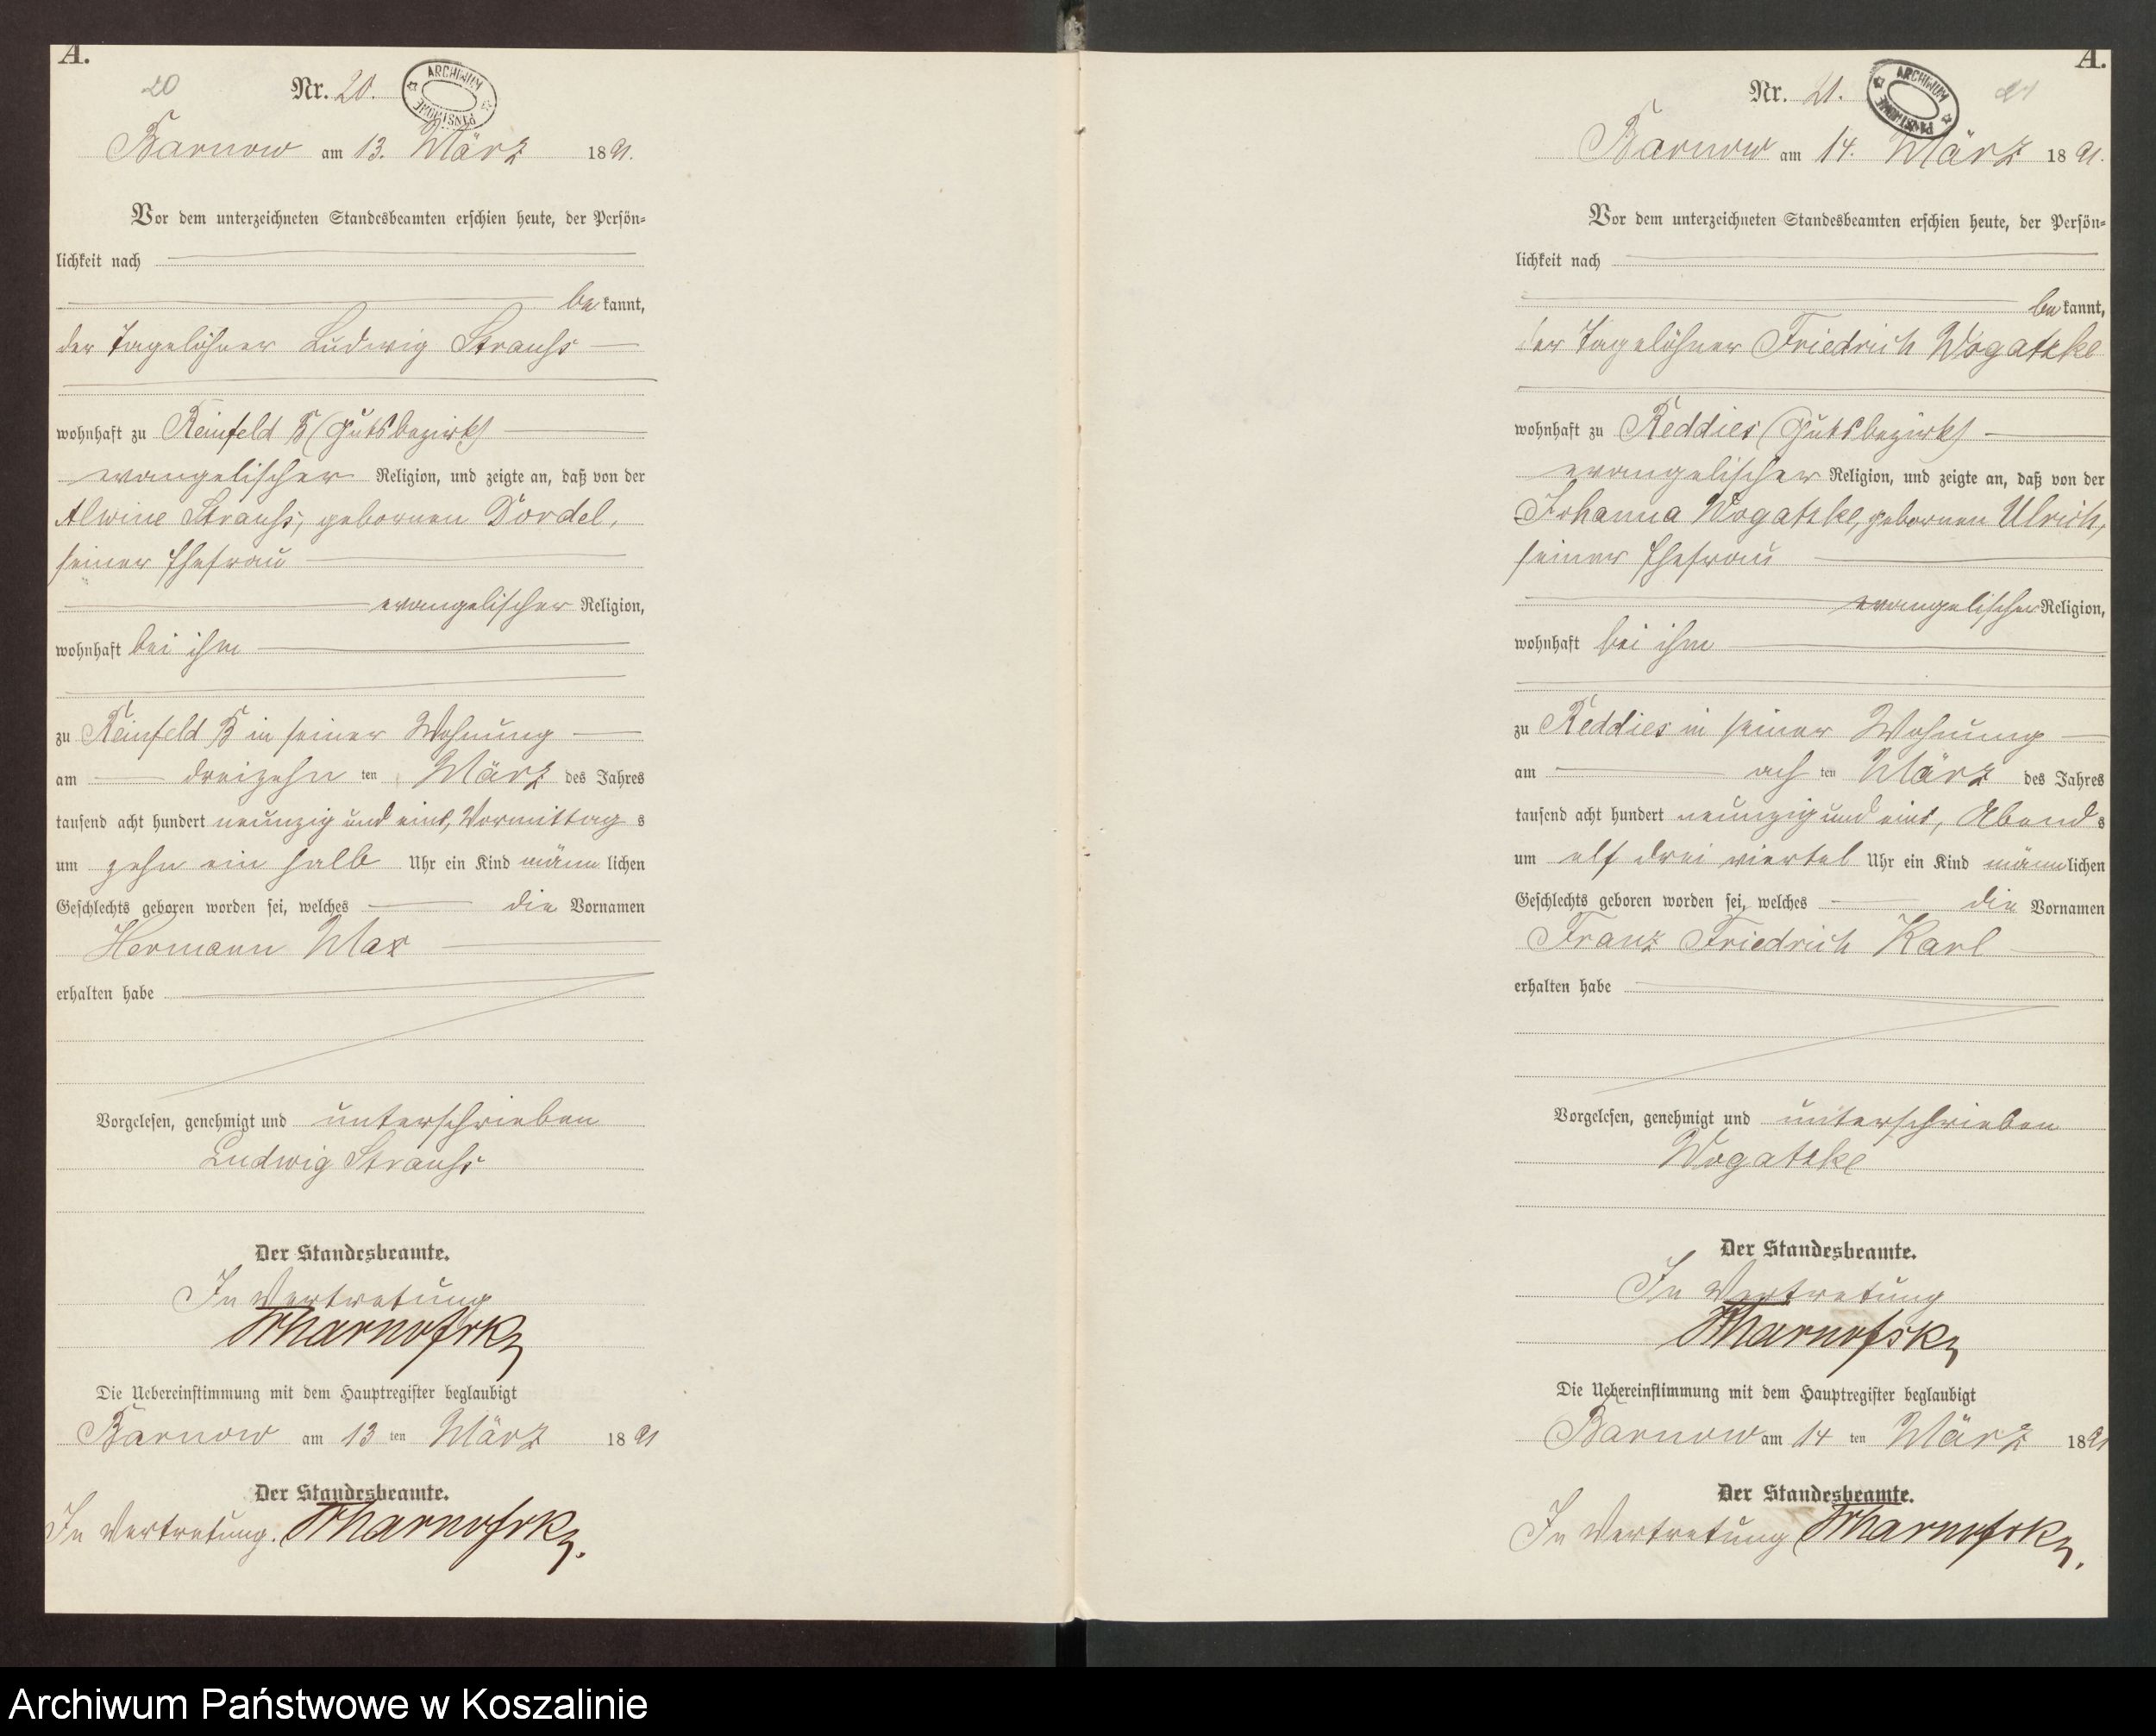 A.
20
Nr. 20.
ARCHIWUM PAŃSTWOWE
Barnow am 13. März 1891.
Vor dem unterzeichneten Standesbeamten erschien heute, der Persön-
lichkeit nach
be kannt,
der Tagelöhner Ludwig Strauß
wohnhaft zu Reinfeld B (Gutsbezirk)
evangelischer Religion, und zeigte an, daß von der
Alwine Strauß, geborenen Dordel,
seiner Ehefrau
evangelischer Religion,
wohnhaft bei ihm
zu Reinfeld B in seiner Wohnung
am dreizehn ten März des Jahres
tausend acht hundert neunzig und eins, Vormittag s
um zehn ein halb Uhr ein Kind männ lichen
Geschlechts geboren worden sei, welches die Vornamen
Hermann Max
erhalten habe
Vorgelesen, genehmigt und unterschrieben
Ludwig Strauß
Der Standesbeamte.
In Vertretung
Die Uebereinstimmung mit dem Hauptregister beglaubigt
Barnow am 13 ten März 1891
Der Standesbeamte.
In Vertretung.
A.
21
Nr. 21.
ARCHIWUM PAŃSTWOWE
Barnow am 14. März 1891.
Vor dem unterzeichneten Standesbeamten erschien heute, der Persön-
lichkeit nach
be kannt,
der Tagelöhner Friedrich Wogatzke
wohnhaft zu Reddies (Gutsbezirk)
evangelischer Religion, und zeigte an, daß von der
Johanna Wogatzke, geborenen Ulrich,
seiner Ehefrau
evangelischer Religion,
wohnhaft bei ihm
zu Reddies in seiner Wohnung
am ach ten März des Jahres
tausend acht hundert neunzig und eins, Abend s
um elf drei viertel Uhr ein Kind männ lichen
Geschlechts geboren worden sei, welches die Vornamen
Franz Friedrich Karl
erhalten habe
Vorgelesen, genehmigt und unterschrieben
Wogatzke
Der Standesbeamte.
In Vertretung
Die Uebereinstimmung mit dem Hauptregister beglaubigt
Barnow am 14 ten März 1891
Der Standesbeamte.
In Vertretung
Archiwum Państwowe w Koszalinie